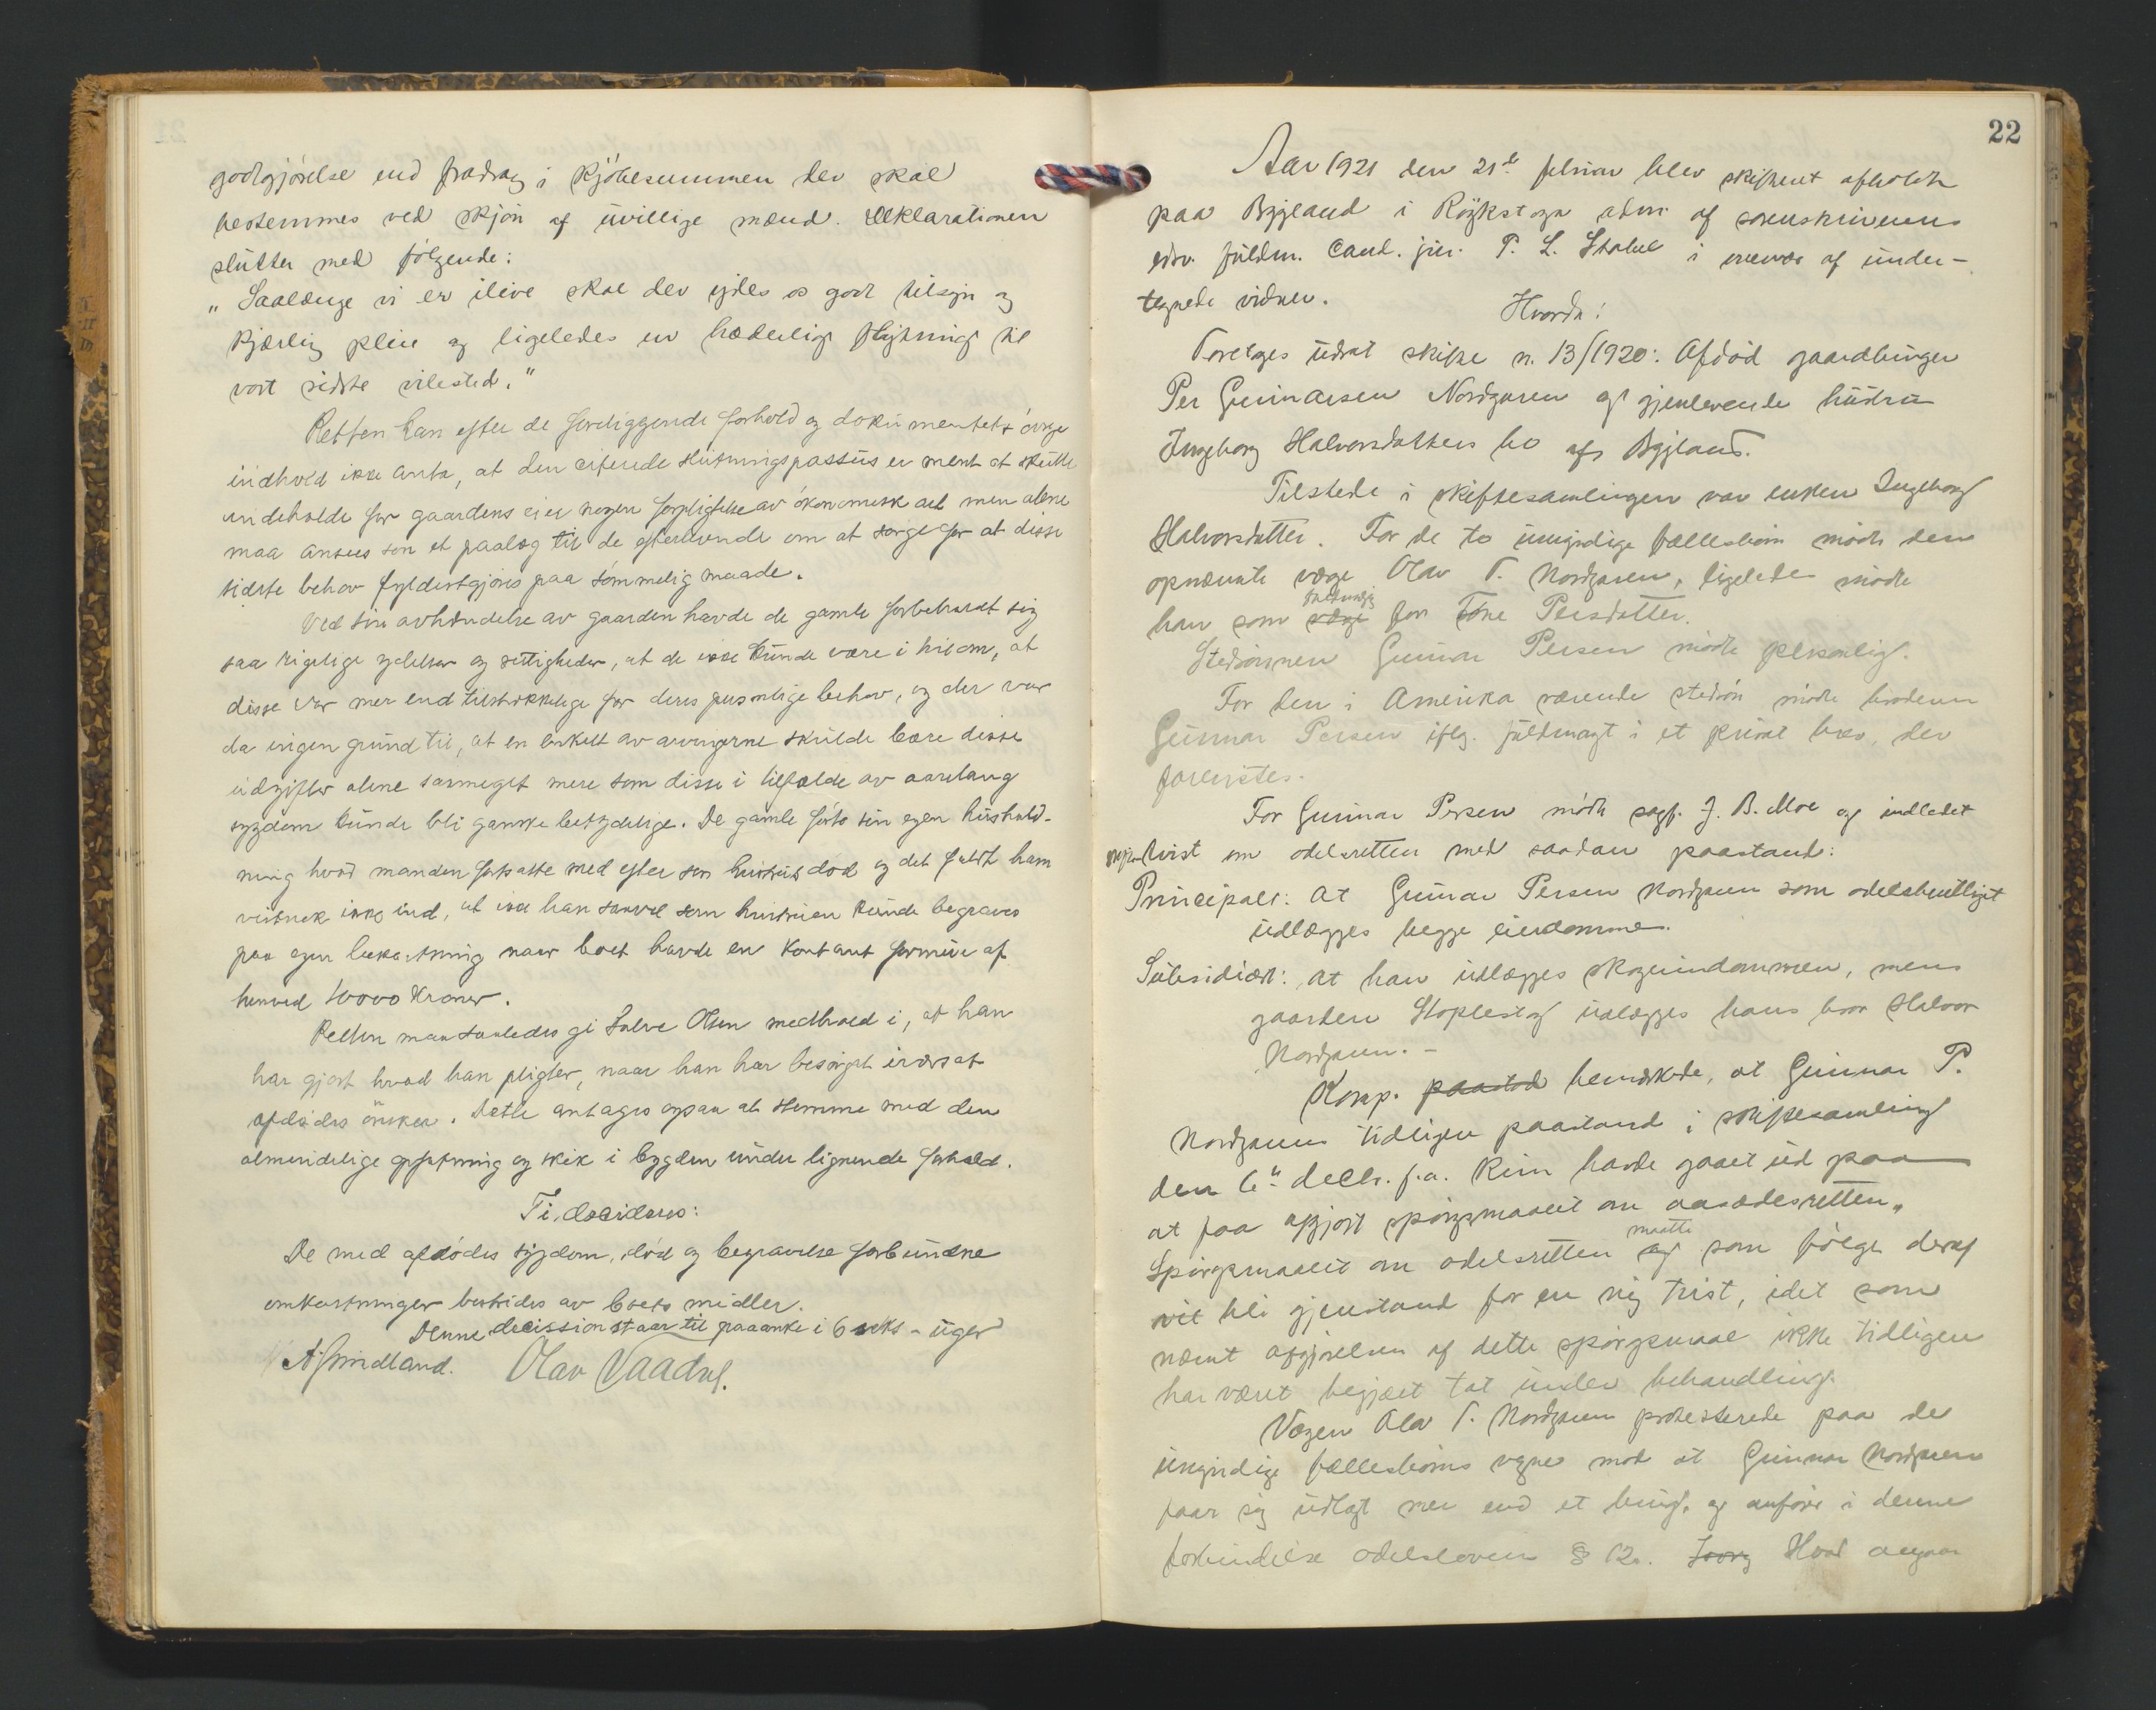 godtgjörelse end fradrag i kjöbesummen der skal
bestemmes ved skjön af uvillige mænd. Deklarationen
slutter med fölgende:
„Saalænge vi er ilive skal der ydes os godt tilsyn og
kjærlig pleie og ligeledes en hæderlig flytning til
vort sidste vilested."
Retten kan efter de foreliggende forhold og dokumentets övrige
indhold ikke anta, at den citerede slutningspassus er ment at skulle
indeholde for gaardens eier nogen forpligtelse av ökonomisk art men alene
maa ansees som et paalæg til de efterlevende om at sörge for at disse
sidste behov fyldestgjöres paa sömmelig maade.
Ved sin avhændelse av gaarden havde de gamle forbeholdt sig
saa rigelige ydelser og rettigheder, at de ikke kunde være i tvil om, at
disse var mer end tilstrækkelige for deres personlige behov, og der var
da ingen grund til, at en enkelt av arvingerne skulde bære disse
udgifter alene saameget mere som disse i tilfælde av aarelang
sygdom kunde bli ganske betydelige. De gamle förte sin egen hushold-
ning hvad manden fortsatte med efter sin hustrus död og det faldt ham
vistnok ikke ind, at ikke han saavel som hustruen kunde begraves
paa egen bekostning naar boet havde en kontant formue af
henved 10000 Kroner.
Retten maa saaledes gi Salve Olsen medhold i, at han
har gjort hvad han pligter, naar han har besörget iværksat
afdödes önsker. Dette antages ogsaa at stemme med den
almindelige opfatning og skik i bygden under lignende forhold.
Ti decideres:
De med afdödes sygdom, död og begravelse forbundne
omkostninger bestrides av boets midler.
Denne decission staar til paaanke i 6 seks - uger
A. Smidland. Olav Vaadnes.
22
Aar 1921 den 21de februar blev skifteret afholdt
paa Bygland i Röykstoga adm. af sorenskriverens
edsv. fuldm. Cand. jur. P. L. Stabel i nærvær af under-
tegnede vidner.
Hvorda:
Foretages utsat skifte n. 13/1920: Afdöd gaardbruger
Per Gunnarsen Nordgaren og gjenlevende hustru
Ingeborg Halvorsdatters bo af Bygland.
Tilstede i skiftesamlingen var enken Ingeborg
Halvorsdatter. For de to umyndige fællesbörn mödte den
opnævnte værge Olav T. Nordgaren, ligeledes mödte
han som værge fuldmægtig for Tone Persdatter.
Stedsönnen Gunnar Persen mödte personlig.
For den i Amerika værende stedsön mödte broderen
Gunnar Persen iflg. fuldmagt i et privat brev, der
forevistes.
For Gunnar Persen mödte sagf. J. B. Moe og indledet
tvist om odelsretten med saadan paastand:
Principalt: At Gunnar Persen Nordgaren som odelsberettiget
udlægges begge eiendomme.
Subsidiært: at han utlægges skogeiendommen, mens
gaarden Stoplestog utlægges hans bror Halvor
Nordgaren. –
Komp. paastod bemærkede, at Gunnar P.
Nordgarens tidligere paastand i skiftesamling
den 6te decbr. f.a. kun havde gaaet ud paa
at faa afgjort spörgsmaalet om aasædesretten.
Spörgsmaalet om odelsretten og maatte som fölge deraf
vil bli gjenstand for en ny tvist, idet som
nævnt afgjörelsen af dette spörgsmaal ikke tidligere
har været begjært tat under behandling.
Værgen Olav T. Nordgaren protesterede paa de
umyndige fællesbörns vegne mod at Gunnar Nordgaren
faar sig udlagt mer end et brug, og anförer i denne
forbindelse odelsloven § 12. Hvad angaar